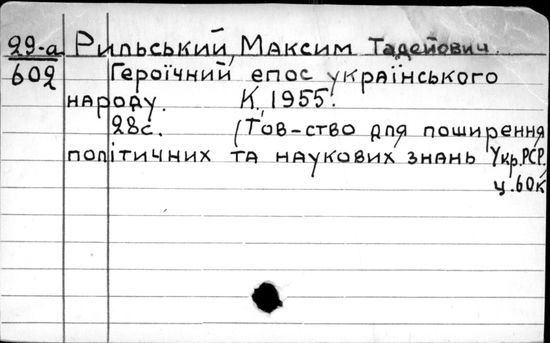 29-а Рильський, Максим Тадейович.
602 Героїчний епос українського
народу. К, 1955.
28с. (Тов-ство для поширення
політичних та наукових знань Укр.РСР)
ц.60к